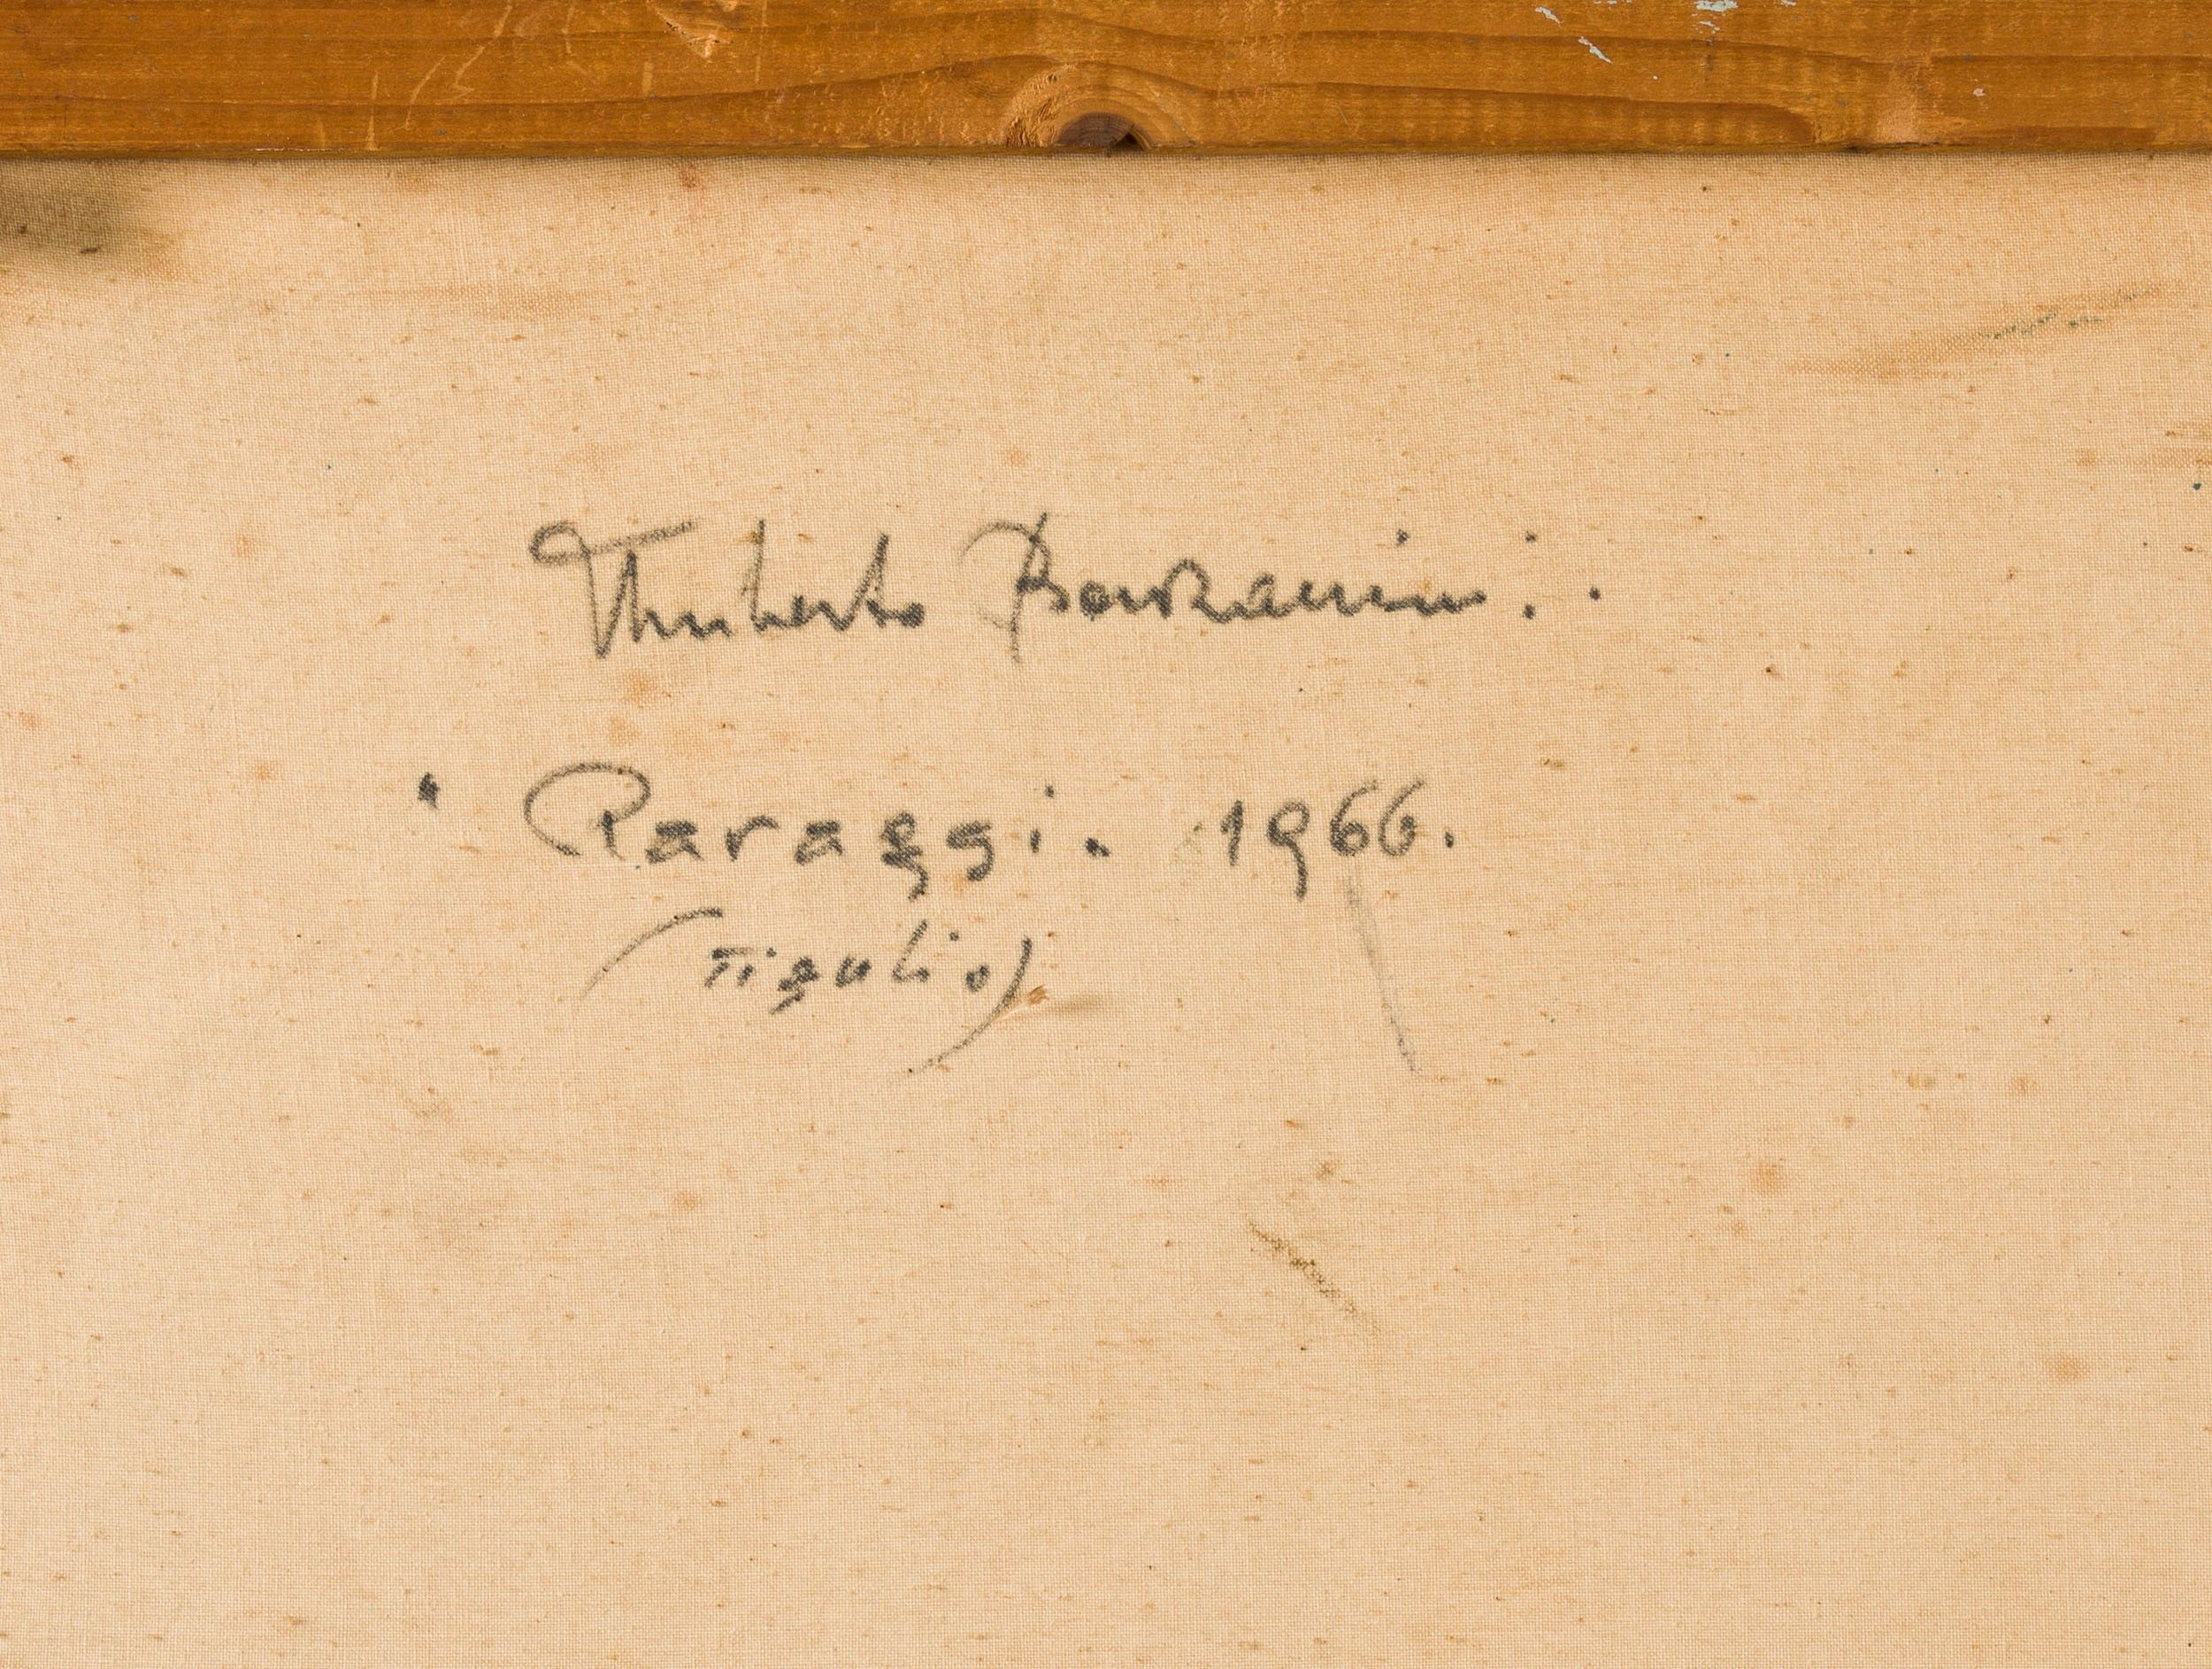 Umberto Barbanini..
• Paraggi. 1966.
(Tigulio)